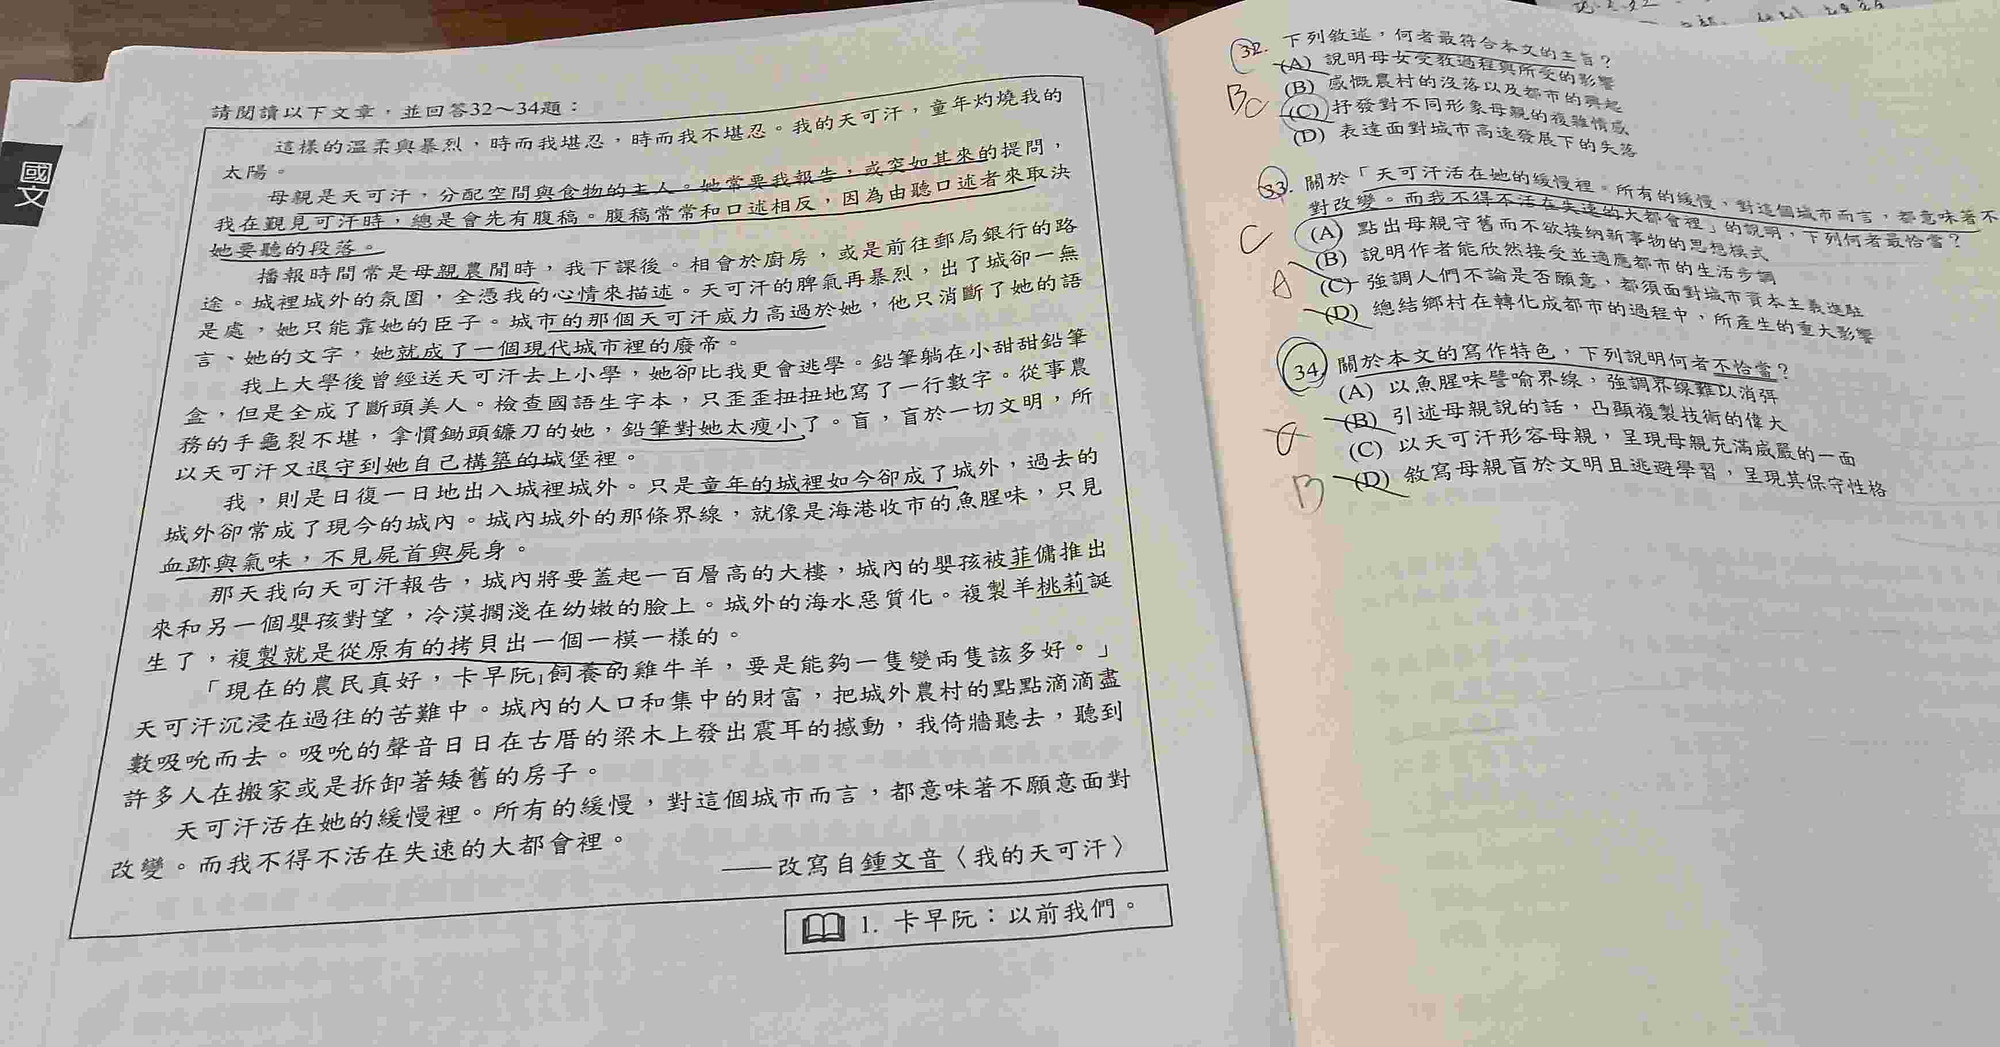 國文
請閱讀以下文章，並回答32～34題：
這樣的溫柔與暴烈，時而我堪忍，時而我不堪忍。我的天可汗，童年灼燒我的
太陽。
母親是天可汗，分配空間與食物的主人。她常要我報告，或突如其來的提問，
我在覲見可汗時，總是會先有腹稿。腹稿常常和口述相反，因為由聽口述者來取決
她要聽的段落。
播報時間常是母親農閒時，我下課後。相會於廚房，或是前往郵局銀行的路
途。城裡城外的氛圍，全憑我的心情來描述。天可汗的脾氣再暴烈，出了城卻一無
是處，她只能靠她的臣子。城市的那個天可汗威力高過於她，他只消斷了她的語
言、她的文字，她就成了一個現代城市裡的廢帝。
我上大學後曾經送天可汗去上小學，她卻比我更會逃學。鉛筆躺在小甜甜鉛筆
盒，但是全成了斷頭美人。檢查國語生字本，只歪歪扭扭地寫了一行數字。從事農
務的手龜裂不堪，拿慣鋤頭鐮刀的她，鉛筆對她太瘦小了。盲，盲於一切文明，所
以天可汗又退守到她自己構築的城堡裡。
我，則是日復一日地出入城裡城外。只是童年的城裡如今卻成了城外，過去的
城外卻常成了現今的城內。城內城外的那條界線，就像是海港收市的魚腥味，只見
血跡與氣味，不見屍首與屍身。
那天我向天可汗報告，城內將要蓋起一百層高的大樓，城內的嬰孩被菲傭推出
來和另一個嬰孩對望，冷漠擱淺在幼嫩的臉上。城外的海水惡質化。複製羊桃莉誕
生了，複製就是從原有的拷貝出一個一模一樣的。
「現在的農民真好，卡早阮1飼養的雞牛羊，要是能夠一隻變兩隻該多好。」
天可汗沉浸在過往的苦難中。城內的人口和集中的財富，把城外農村的點點滴滴盡
數吸吮而去。吸吮的聲音日日在古厝的梁木上發出震耳的撼動，我倚牆聽去，聽到
許多人在搬家或是拆卸著矮舊的房子。
天可汗活在她的緩慢裡。所有的緩慢，對這個城市而言，都意味著不願意面對
改變。而我不得不活在失速的大都會裡。
——改寫自鍾文音〈我的天可汗〉
1. 卡早阮：以前我們。
32. 下列敘述，何者最符合本文的主旨？
(A) 說明母女受教過程與所受的影響
(B) 感慨農村的沒落以及都市的興起
BC
(C) 抒發對不同形象母親的複雜情感
(D) 表達面對城市高速發展下的失落
33. 關於「天可汗活在她的緩慢裡。所有的緩慢，對這個城市而言，都意味著不
對改變。而我不得不活在失速的大都會裡」的說明，下列何者最恰當？
C
(A) 點出母親守舊而不欲接納新事物的思想模式
(B) 說明作者能欣然接受並適應都市的生活步調
A
(C) 強調人們不論是否願意，都須面對城市資本主義進駐
(D) 總結鄉村在轉化成都市的過程中，所產生的重大影響
34. 關於本文的寫作特色，下列說明何者不恰當？
(A) 以魚腥味譬喻界線，強調界線難以消弭
(B) 引述母親說的話，凸顯複製技術的偉大
(C) 以天可汗形容母親，呈現母親充滿威嚴的一面
B
(D) 敘寫母親盲於文明且逃避學習，呈現其保守性格